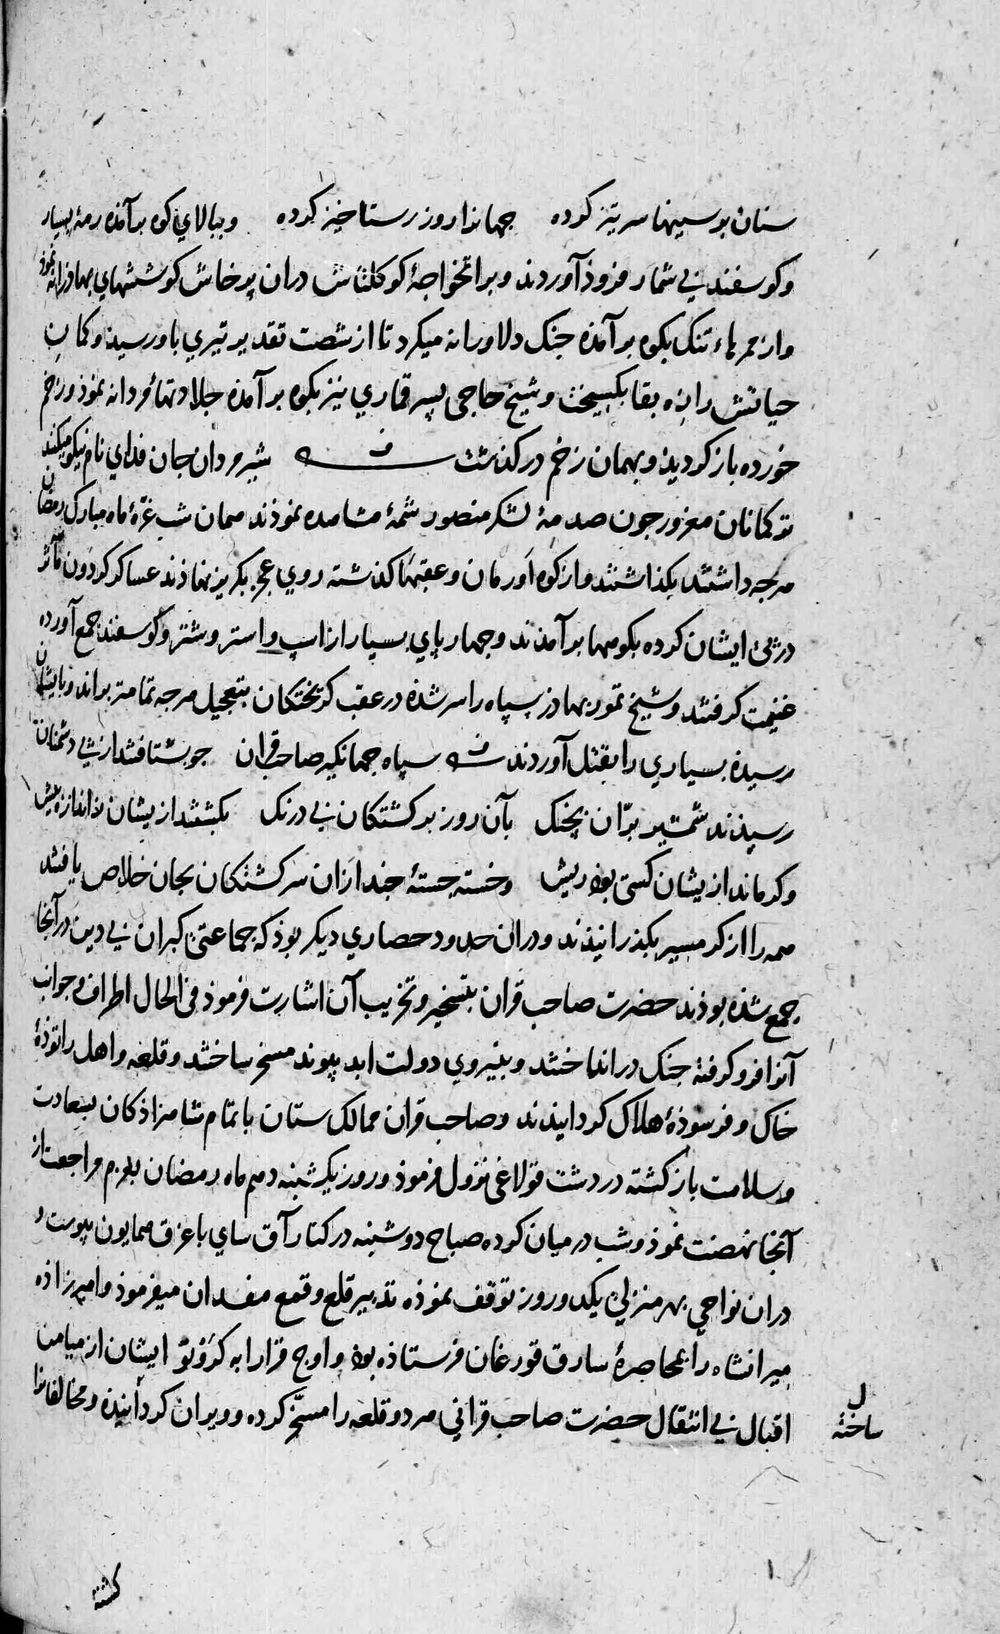 سنان بر سینها سر تیز کرده جهانرا روز رستاخیز کرده و ببالای کوه برآمده رمهٔ بسیار
و کوسفند بی شمار فروذ آوردند و براتخواجهٔ کوکلتاش دران پرخاش کوششهای بهادرانه نموذ
و از ممرهاء تنک بکوه برآمده جنک دلاورانه میکرد تا از شصت تقدیر تیری باو رسید و کمان
حیاتش را زه بقا بکسیخت و شیخ حاجی پسر قماری نیز بکوه برآمده جلادتهاء مردانه نموذ و زخم
خورده باز کردید و بهمان زخم درکذشت شیرمردان جان فدای نام نیکو میکنند
ترکمانان مغرور چون صدمهٔ لشکر منصور شمهٔ مشاهده نموذند همان شب غرهٔ ماه مبارک رمضان
هرچه داشتند بکذاشتند و از کوه اورمان و عقبها کذشته روی عجز بکریز نهاذند عساکر کردون مآثر
در پی ایشان کرده بکوهها برآمدند و چهارپای بسیار از اسب و استر و شتر و کوسفند جمع آورده
غنیمت کرفتند و شیخ تمور بهادر سپاه را سر شذه در عقب کریختکان بتعجیل هرچه تمامتر براند و بایشان
رسیده بسیاری را بقتل آوردند سپاه جهانکیر صاحب قران چو بشتافتند از پی دشمنان
رسیذند شمشیر بران بچنک بآن روز برکشتکان بی درنک بکشتند از یشان ز اندازه بیش
و کر ماند از یشان کسی بوذ ریش و خسته جستهٔ چند ازان سرکشتکان بجان خلاص یافتند
همه را از کرمسیر بکذرانیذند و دران حدود حصاری دیکر بوذ که جماعتی کبران بی دین در آنجا
جمع شذه بوذند حضرت صاحب قران بتسخیر و تخریب آن اشارت فرموذ فی الحال اطراف و جوانب
آنرا فرو کرفته جنک در انداختند و بنیروی دولت ابد پیوند مسخر ساختند و قلعه و اهل را توذهٔ
خاک و فرسوذهٔ هلاک کردانیذند و صاحب قران ممالک ستان با تمام شاهزاذکان بسعادت
و سلامت بازکشته در دشت قولاغی نزول فرموذ و روز یکشنبه دهم ماه رمضان بعزم مراجعت از
آنجا نهضت نموذ و شب در میان کرده صباح دوشنبه در کنار آق سای باغرق همایون پیوست و
دران نواحی بهر منزلی یکدو روز توقف نموذه تدبیر قلع و قمع مفسدان میفرموذ و امیرزاذه
میرانشاه را بمحاصرهٔ سارق قورغان فرستاذه بوذ و اوج قرا را به کرزو تو ایشان از میامن
اقبال بی انتقال حضرت صاحب قرانی هر دو قلعه را مسخر کرده و ویران کردانیذه و مخالفانرا
ل
ساخته
کشته